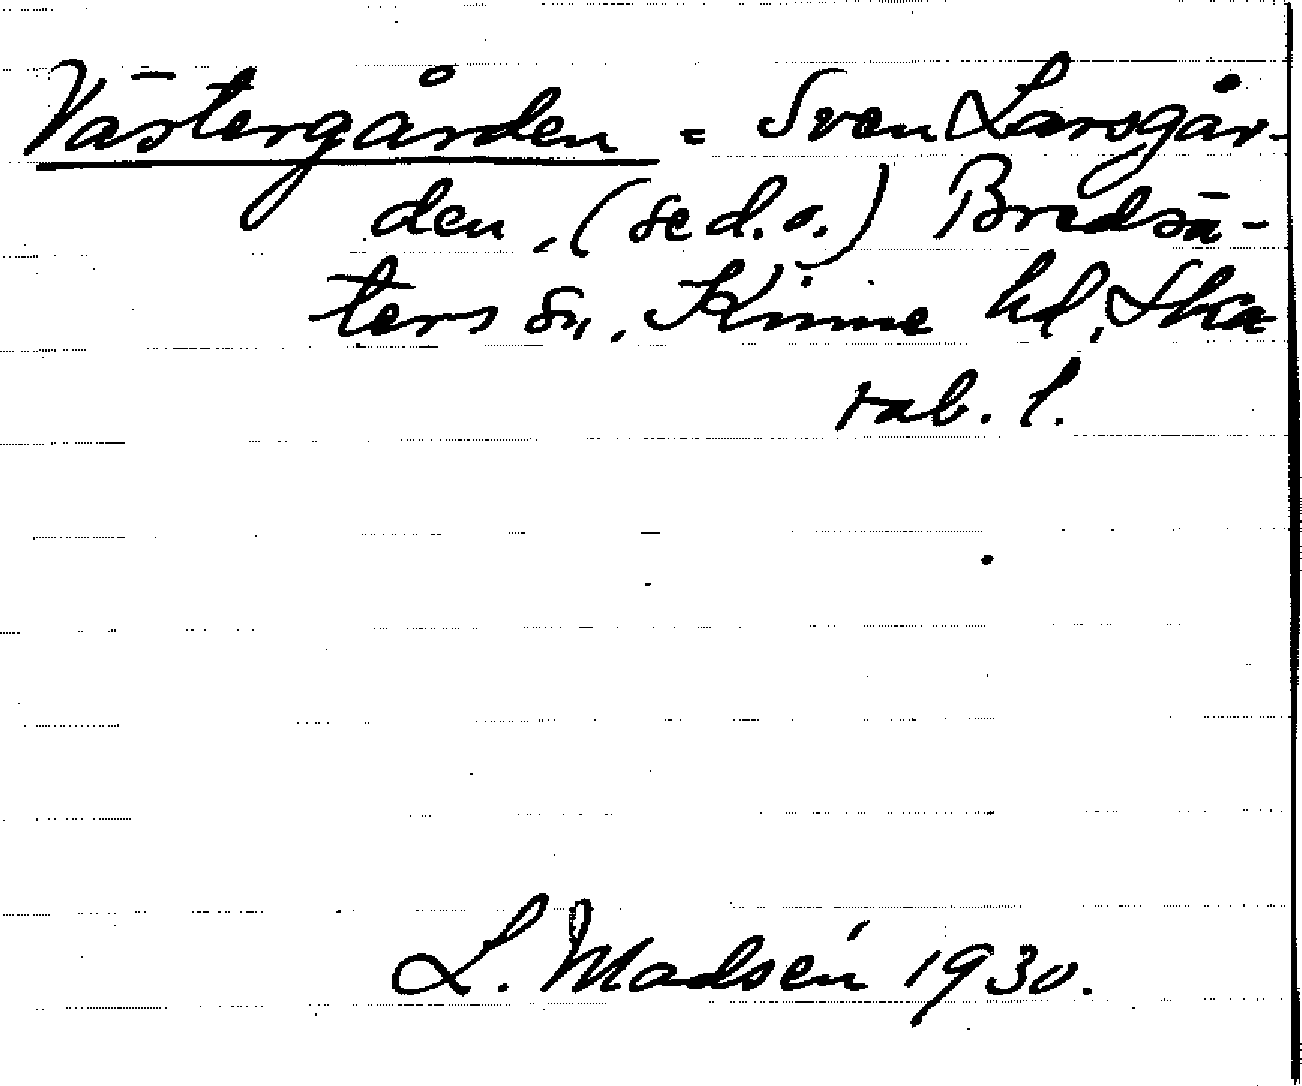 Västergården = Sven Larsgår-
den, (se d.o.) Bredsä-
ters sn, Kinne hd, Ska-
rab. l.
L. Madsén 1930.